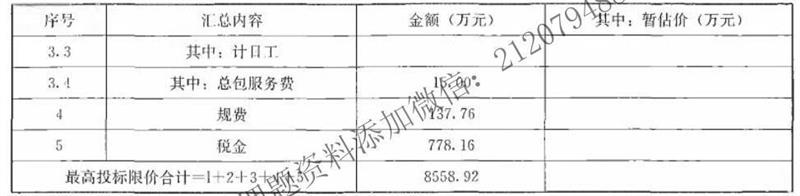 序号 汇总内容 金额（万元） 其中：暂估价（万元）
3.3 其中：计日工
3.4 其中：总包服务费 15.00
4 规费 137.76
5 税金 778.16
最高投标限价合计=1+2+3+4+5 8558.92
课题资料添加微信：212079486